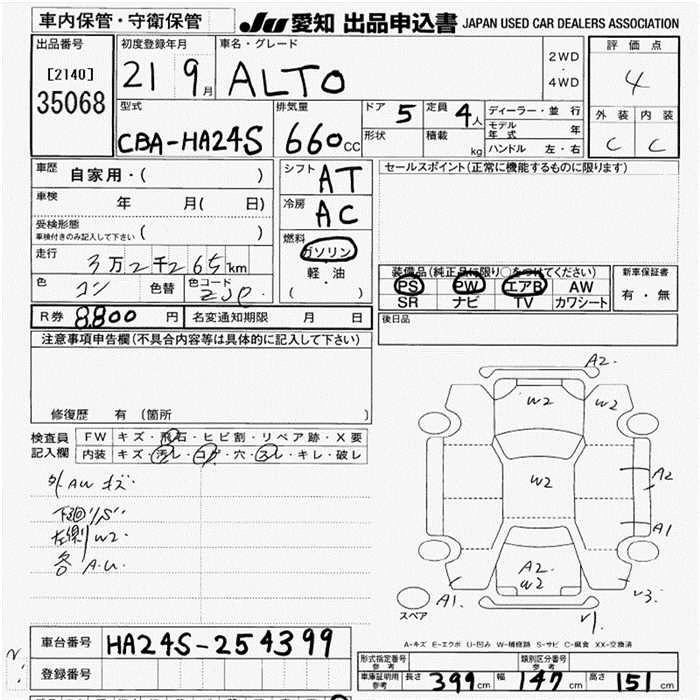 車内保管・守衛保管
JU 愛知 出品申込書 JAPAN USED CAR DEALERS ASSOCIATION
出品番号
[2140]
35068
初度登録年月
21 9月
車名・グレード
ALTO
2WD
・
4WD
評価点
4
外装 内装
C C
型式
CBA-HA24S
排気量
660cc
ドア 5
定員 4人
形状
積載 kg
ディーラー・並行
モデル年式 年
ハンドル 左・右
車歴 自家用・( )
車検 年 月( 日)
受検形態
車検付きのみ記入して下さい ( )
走行 3万2千265km
色 コン 色替 色コード ZJP
シフト AT
冷房 AC
燃料
ガソリン
軽・油
( )
セールスポイント(正常に機能するものに限ります)
装備品(純正品に限り○をつけてください)
PS PW エアB AW
SR ナビ TV カワシート
新車保証書
有・無
R券 8,800 円 名変通知期限 月 日
後日品
注意事項申告欄(不具合内容等は具体的に記入して下さい)
修復歴 有 (箇所 )
検査員
記入欄
FW キズ・飛石・ヒビ割・リペア跡・X要
内装 キズ・汚レ・コゲ・穴・スレ・キレ・破レ
外AWキズ
下回リS
左側W2
各A.U.
A2
W2
W2
W2
A2
A1
A2
W2
A1
V3
V1
スペア
A-キズ E-エクボ U-凹み W-補修跡 S-サビ C-腐食 XX-交換済
車台番号 HA24S-254399
登録番号
形式指定番号
参考
類別区分番号
参考
車庫証明用
参考
長さ 399cm 幅 147cm 高さ 151cm